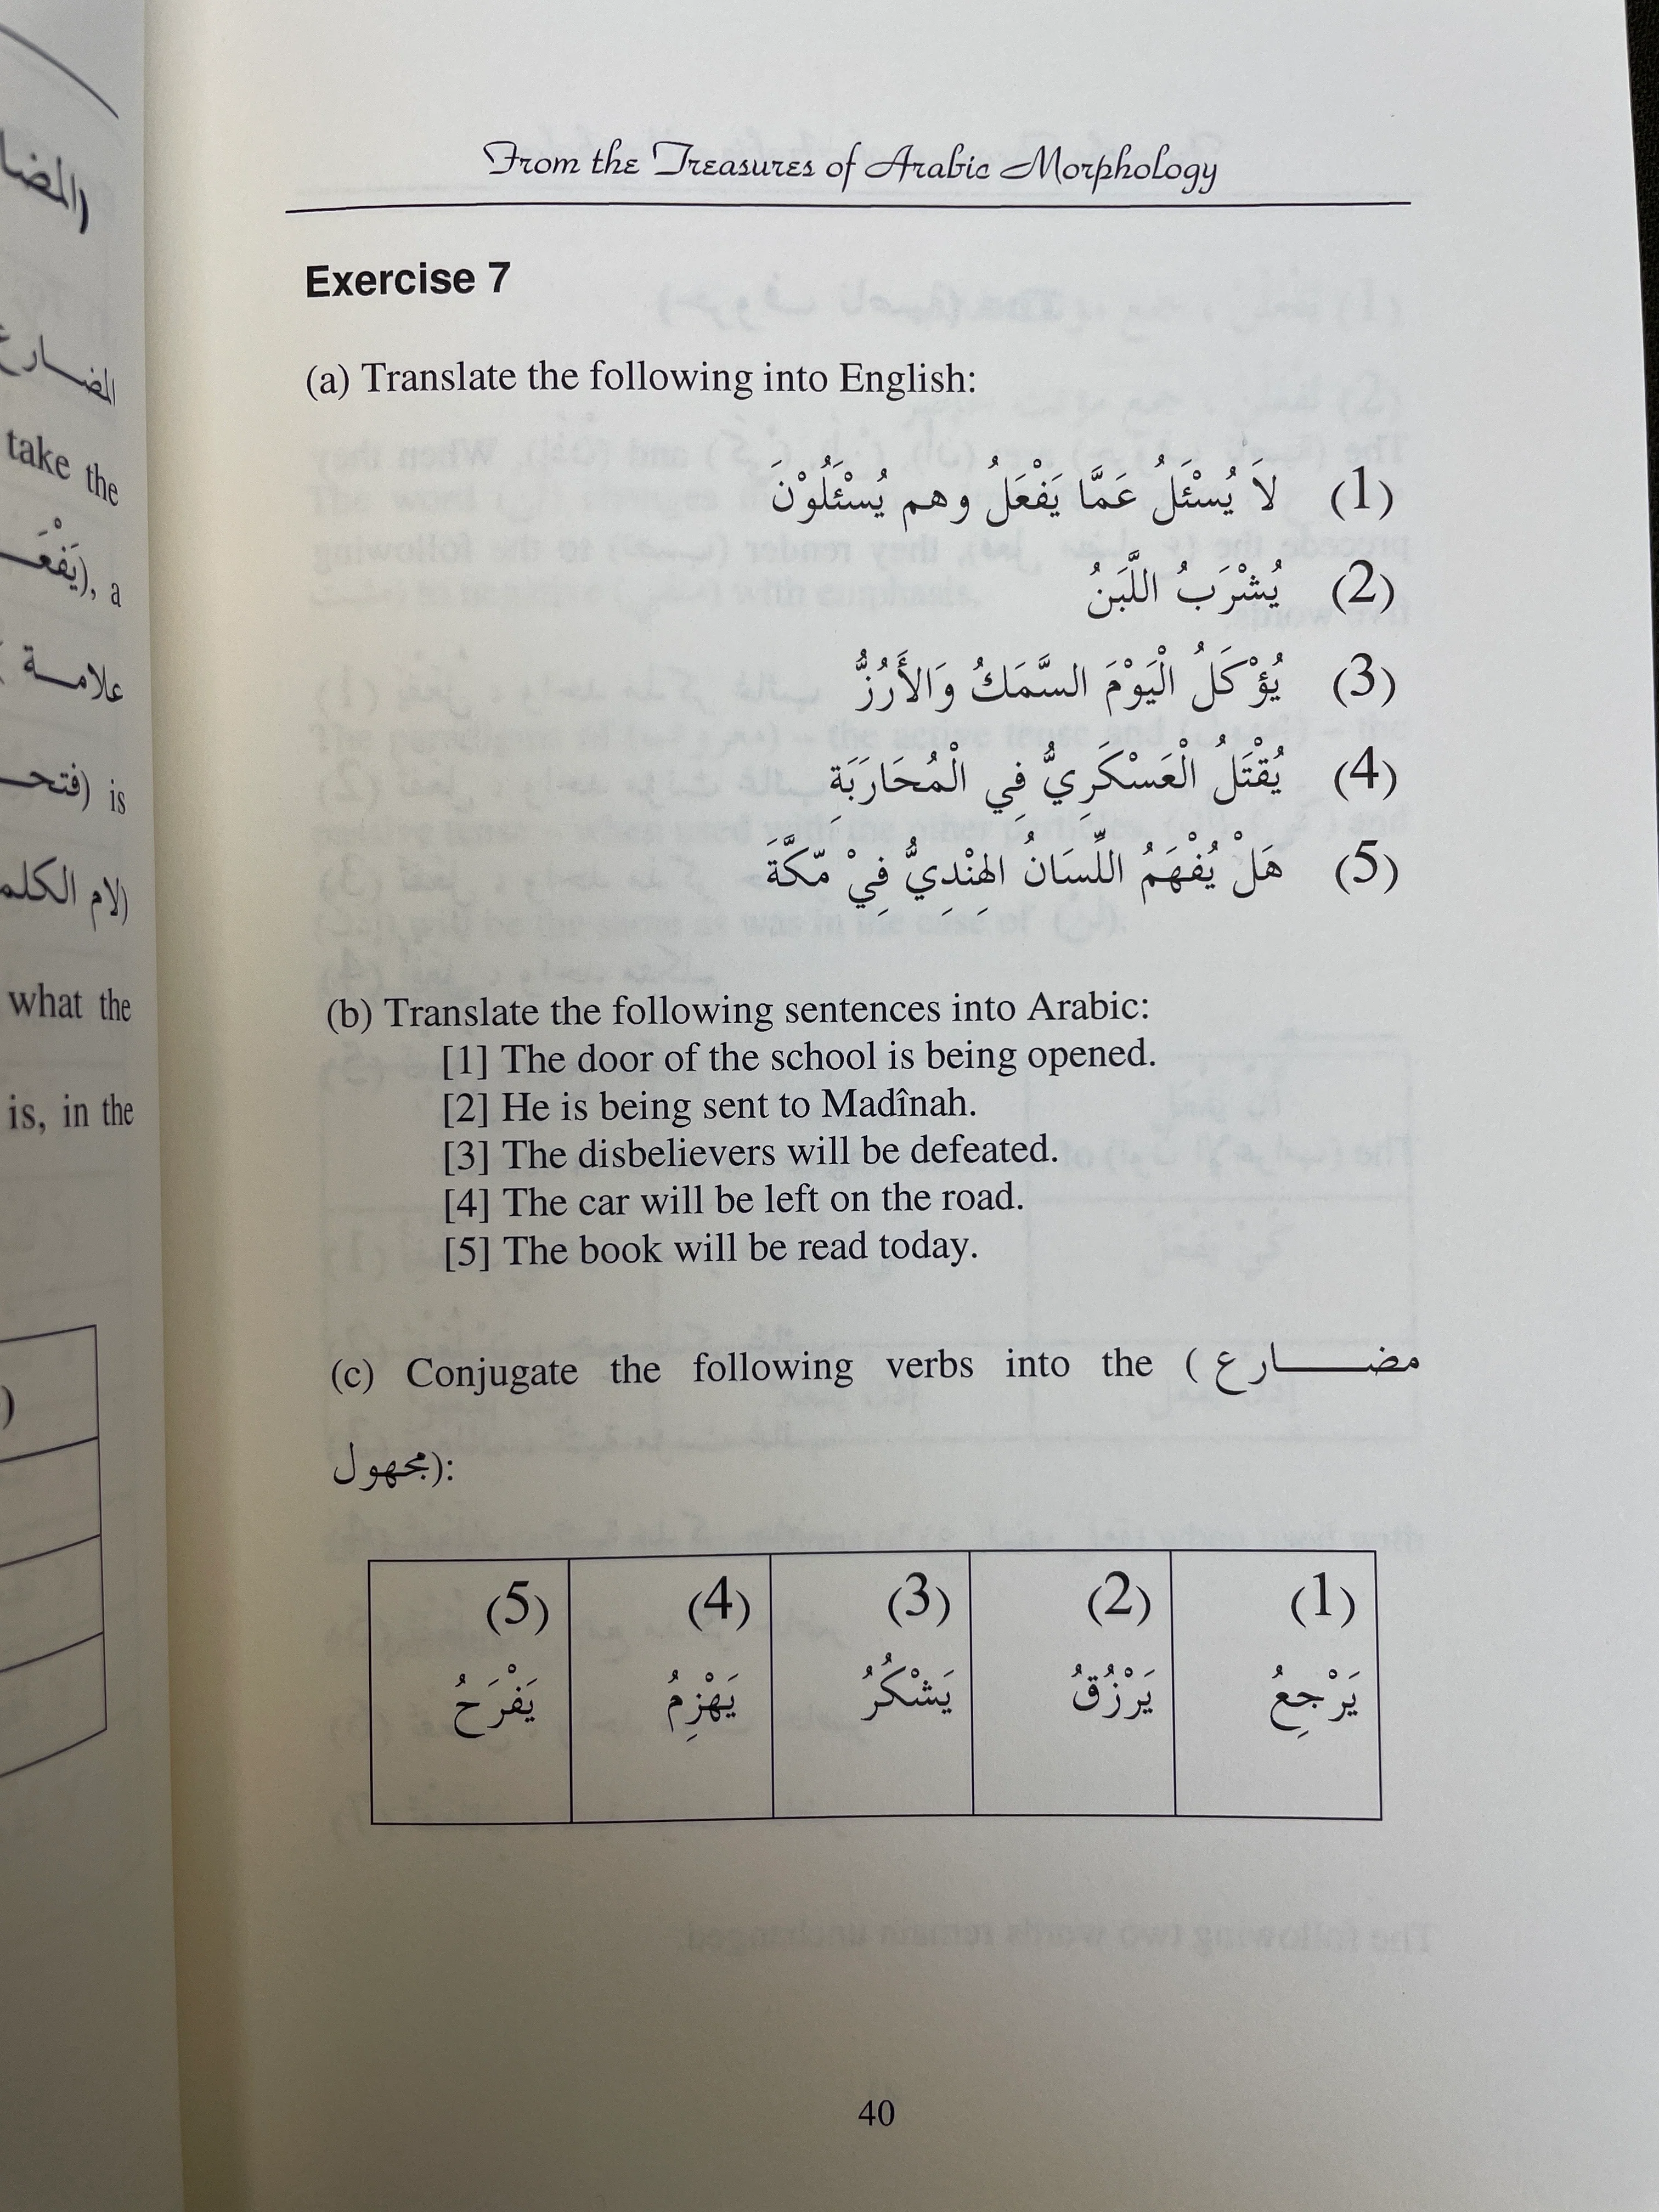 (المضا
المضارع
take the
(يَفْعَـ), a
علامة
(فتحـ) is
(لام الكلمـ
what the
is, in the
From the Treasures of Arabic Morphology
Exercise 7
(a) Translate the following into English:
(1) لاَ يُسْئَلُ عَمَّا يَفْعَلُ وهم يُسْئَلُوْنَ
(2) يُشْرَبُ اللَّبَنُ
(3) يُؤْكَلُ الْيَوْمَ السَّمَكُ وَالأَرُزُّ
(4) يُقْتَلُ الْعَسْكَرِيُّ فِي الْمُحَارَبَةِ
(5) هَلْ يُفْهَمُ اللِّسَانُ الهِنْدِيُّ فِيْ مّكَّةَ
(b) Translate the following sentences into Arabic:
[1] The door of the school is being opened.
[2] He is being sent to Madînah.
[3] The disbelievers will be defeated.
[4] The car will be left on the road.
[5] The book will be read today.
(c) Conjugate the following verbs into the (مضـــــارع
مجهول):
(5) (4) (3) (2) (1)
يَفْرَحُ يَهْزِمُ يَشْكُرُ يَرْزُقُ يَرْجِعُ
40